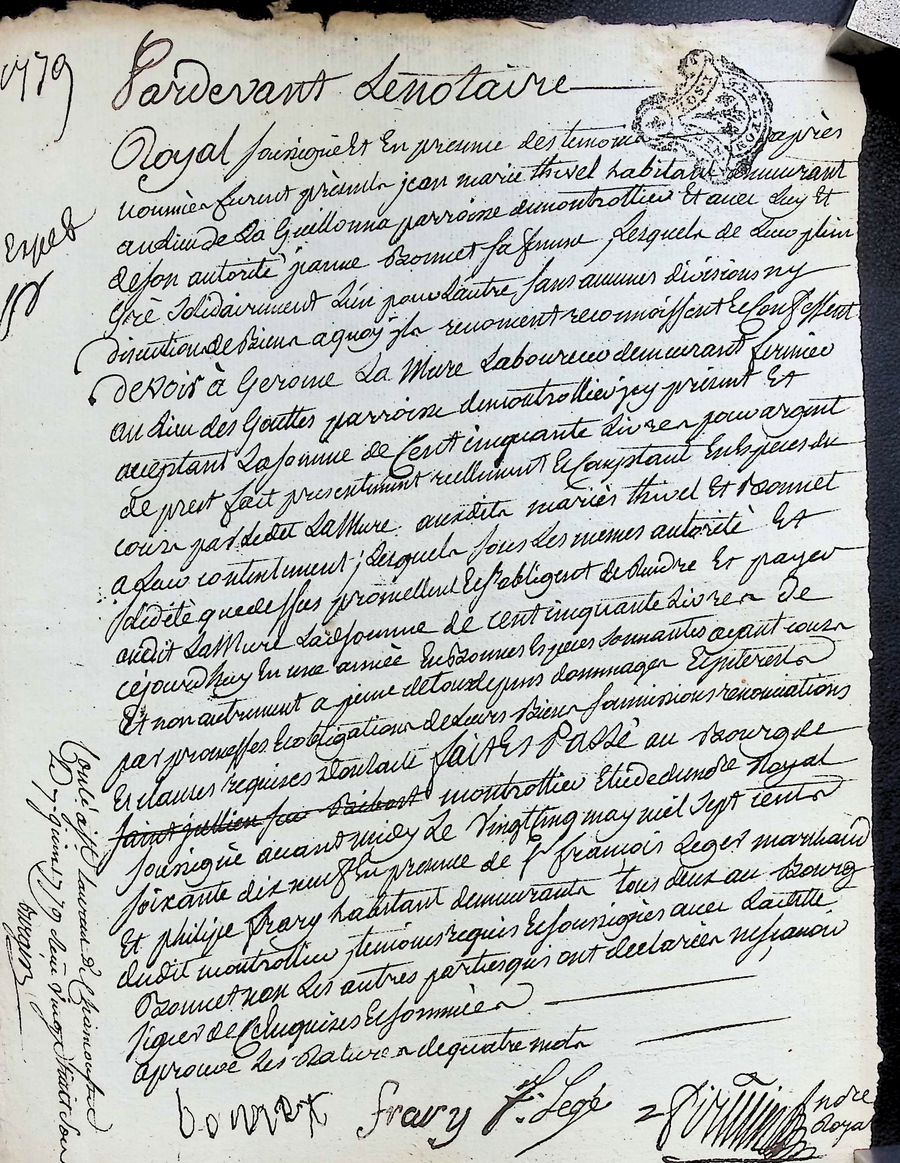 1779
Pardevant Le notaire
Royal soussigné Et En presence des temoins après
nommés furent présents jean marie thivel habitant demeurant
au Lieu de La Guillonna parroisse de montrottier Et avec Luy Et
de son autorité jeanne Bonnet sa femme, Lesquels de Leur plein
Gré solidairement L'un pour L'autre sans aucunes divisions ny
discution de Biens a quoy ils renoncent reconnoissent Et Confessent
devoir à Gerome La Mure Laboureur demeurant fermier
au Lieu des Gouttes parroisse de montrottier jcy présent Et
aceptant La somme de Cent cinquante Livres pour argent
de prest fait presentement réellement Et Comptant En Espèces du
cours par Ledit La Mure auxdits mariés thivel Et Bonnet
a Leur contentement; Lesquels sous Les memes autorité Et
solidité que dessus promettent Et s'obligent de Rendre Et payer
audit La Mure Ladte somme de cent cinquante Livres de
cejourdhuy En une année En Bonnes Espèces sonnantes ayant cours
Et non autrement a peine de tous depens dommages Et interests
par promesses Et obligations de Leurs Biens soumissions renonciations
Et clauses requises dont acte fait Et Passé au Bourg de
saint jullien sur Bibost montrottier Etude du nore Royal
soussigné avant midy Le Vingt cinq may mil sept cents
soixante dix neuf En presence de Sr francois Leger marchand
Et philipe frary habitant demeurants tous deux au Bourg
dudit montrottier temoins requis Et soussignés avec Laditte
Bonnet non Les autres parties qui ont declarées ne sçavoir
signer de ce Enquises Et sommées
aprouvé Les Ratures de quatre mots
bonnet frary f. Legé nore
Royal
Expet
Controlé a st Laurent de Chamousset
Le juin 1779 Reçu vingt huit sou